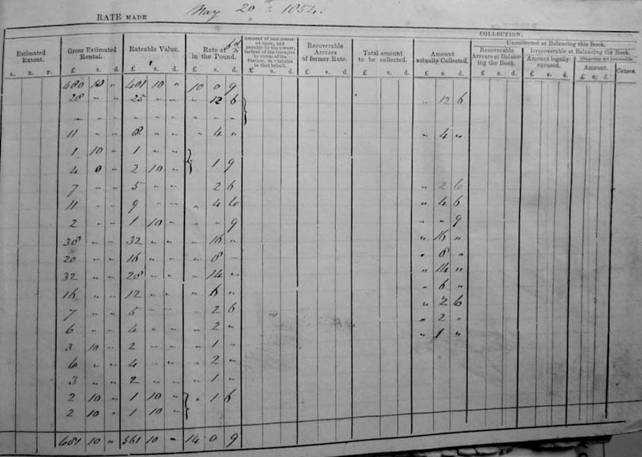 RATE MADE May 20th 1854.
COLLECTION.
Estimated Extent. Gross Estimated Rental. Rateable Value. Rate at 6d in the Pound. Recoverable Arrears of former Rate. Total amount to be collected. Amount actually Collected. Uncollected at Balancing this Book.
Recoverable Arrears at Balancing the Book. Irrecoverable at Balancing the Book.
Amount legally excused. Amount. Causes.
A. R. P. £ s. d. £ s. d. £ s. d. £ s. d. £ s. d. £ s. d. £ s. d. £ s. d. £ s. d. £ s. d.
480 10 " 401 10 " 10 0 9
28 - - 25 - - " 12 6 " 12 6
- - - - - -
11 - - 8 - - " 4 " " 4 "
1 10 - 1 - -
4 0 - 2 10 - } 1 9
7 - - 5 - - 2 6 " 2 6
11 - - 9 - - " 4 6 " 4 6
2 - - 1 10 - " " 9 " " 9
38 - - 32 - - " 16 " " 16 "
20 - - 16 - - " 8 " " 8 "
32 - - 28 - - " 14 " " 14 "
16 - - 12 - - " 6 " " 6 "
7 - - 5 - - " 2 6 " 2 6
6 - - 4 - - " 2 " " 2 "
3 10 - 2 - - " 1 " " 1 "
6 - - 4 - - " 2 "
3 - - 2 - - " 1 "
2 10 - 1 10 - } " 1 6
2 10 - 1 10 -
681 10 " 561 10 " 14 0 9